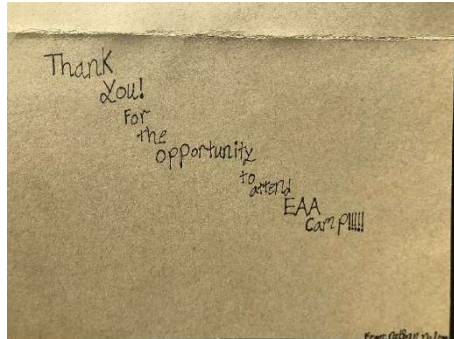 Thank
You!
For
the
opportunity
to
attend
EAA
Camp!!!!!
From: